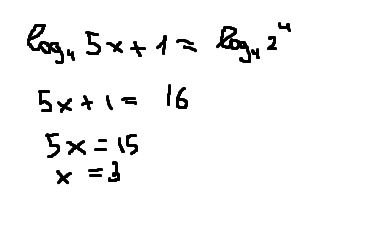 log₄ 5x + 1 = log₄ 2⁴
5x + 1 = 16
5x = 15
x = 3